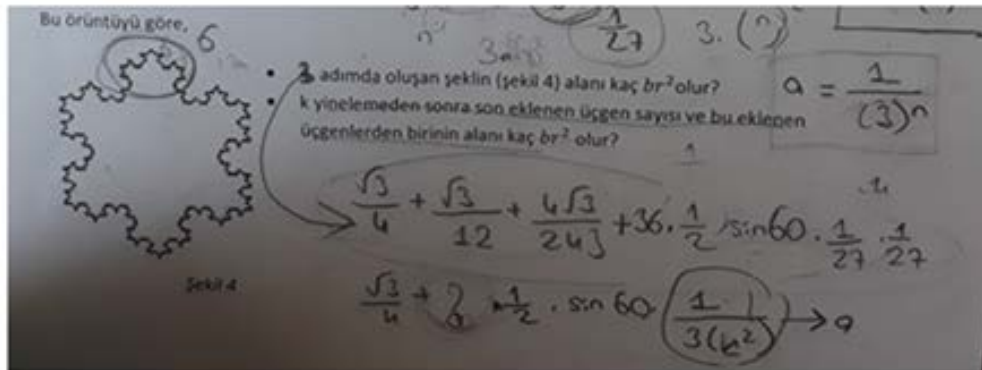 Bu örüntüyü göre,
6
1/27
3. (n)
a = 1/(3)ⁿ
3. adımda oluşan şeklin (şekil 4) alanı kaç br² olur?
k yinelemeden sonra son eklenen üçgen sayısı ve bu eklenen
üçgenlerden birinin alanı kaç br² olur?
√3/4 + √3/12 + 4√3/243 + 36 · 1/2 · sin60 · 1/27 · 1/27
Şekil 4
√3/4 + · 1/2 · sin 60 1/3(k²) → a